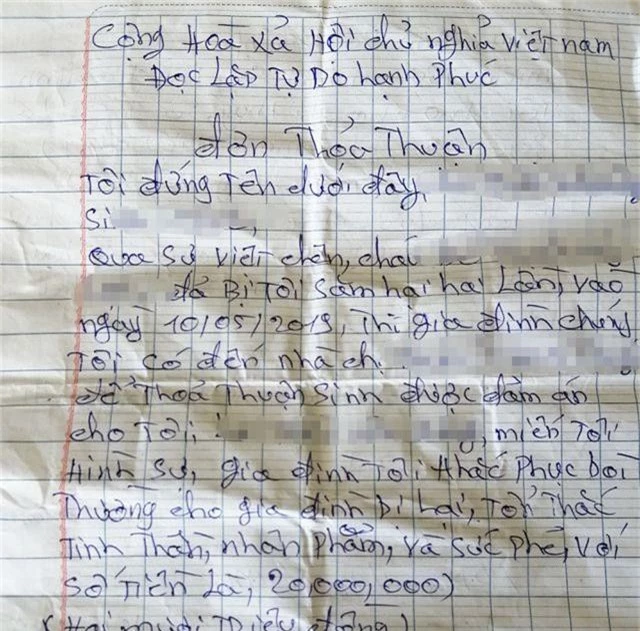 Cộng Hoà xả Hội chủ nghỉa việt nam
Đọc Lập Tự Do hạnh Phúc
đơn Thỏa Thuận
Tôi đứng Tên dưới đây,
Si
Qua sự việt
đả Bị Tôi sâm hại hai Lần, vào
ngày 10/05/2019, Thì gia đình chúng
Tôi có đến nhà chị
để Thoả Thuận Sinh được đàm án
cho Tôi, miển Tới
Hình sự, gia đình Tôi khắc Phục bồi
Thường cho gia đình bị hại, Tổn Thấc
Tinh Thần, nhân Phẩm, và sức Phẻ, với
số Tiền Là, 20,000,000)
(Hai mươi Triệu đồng)